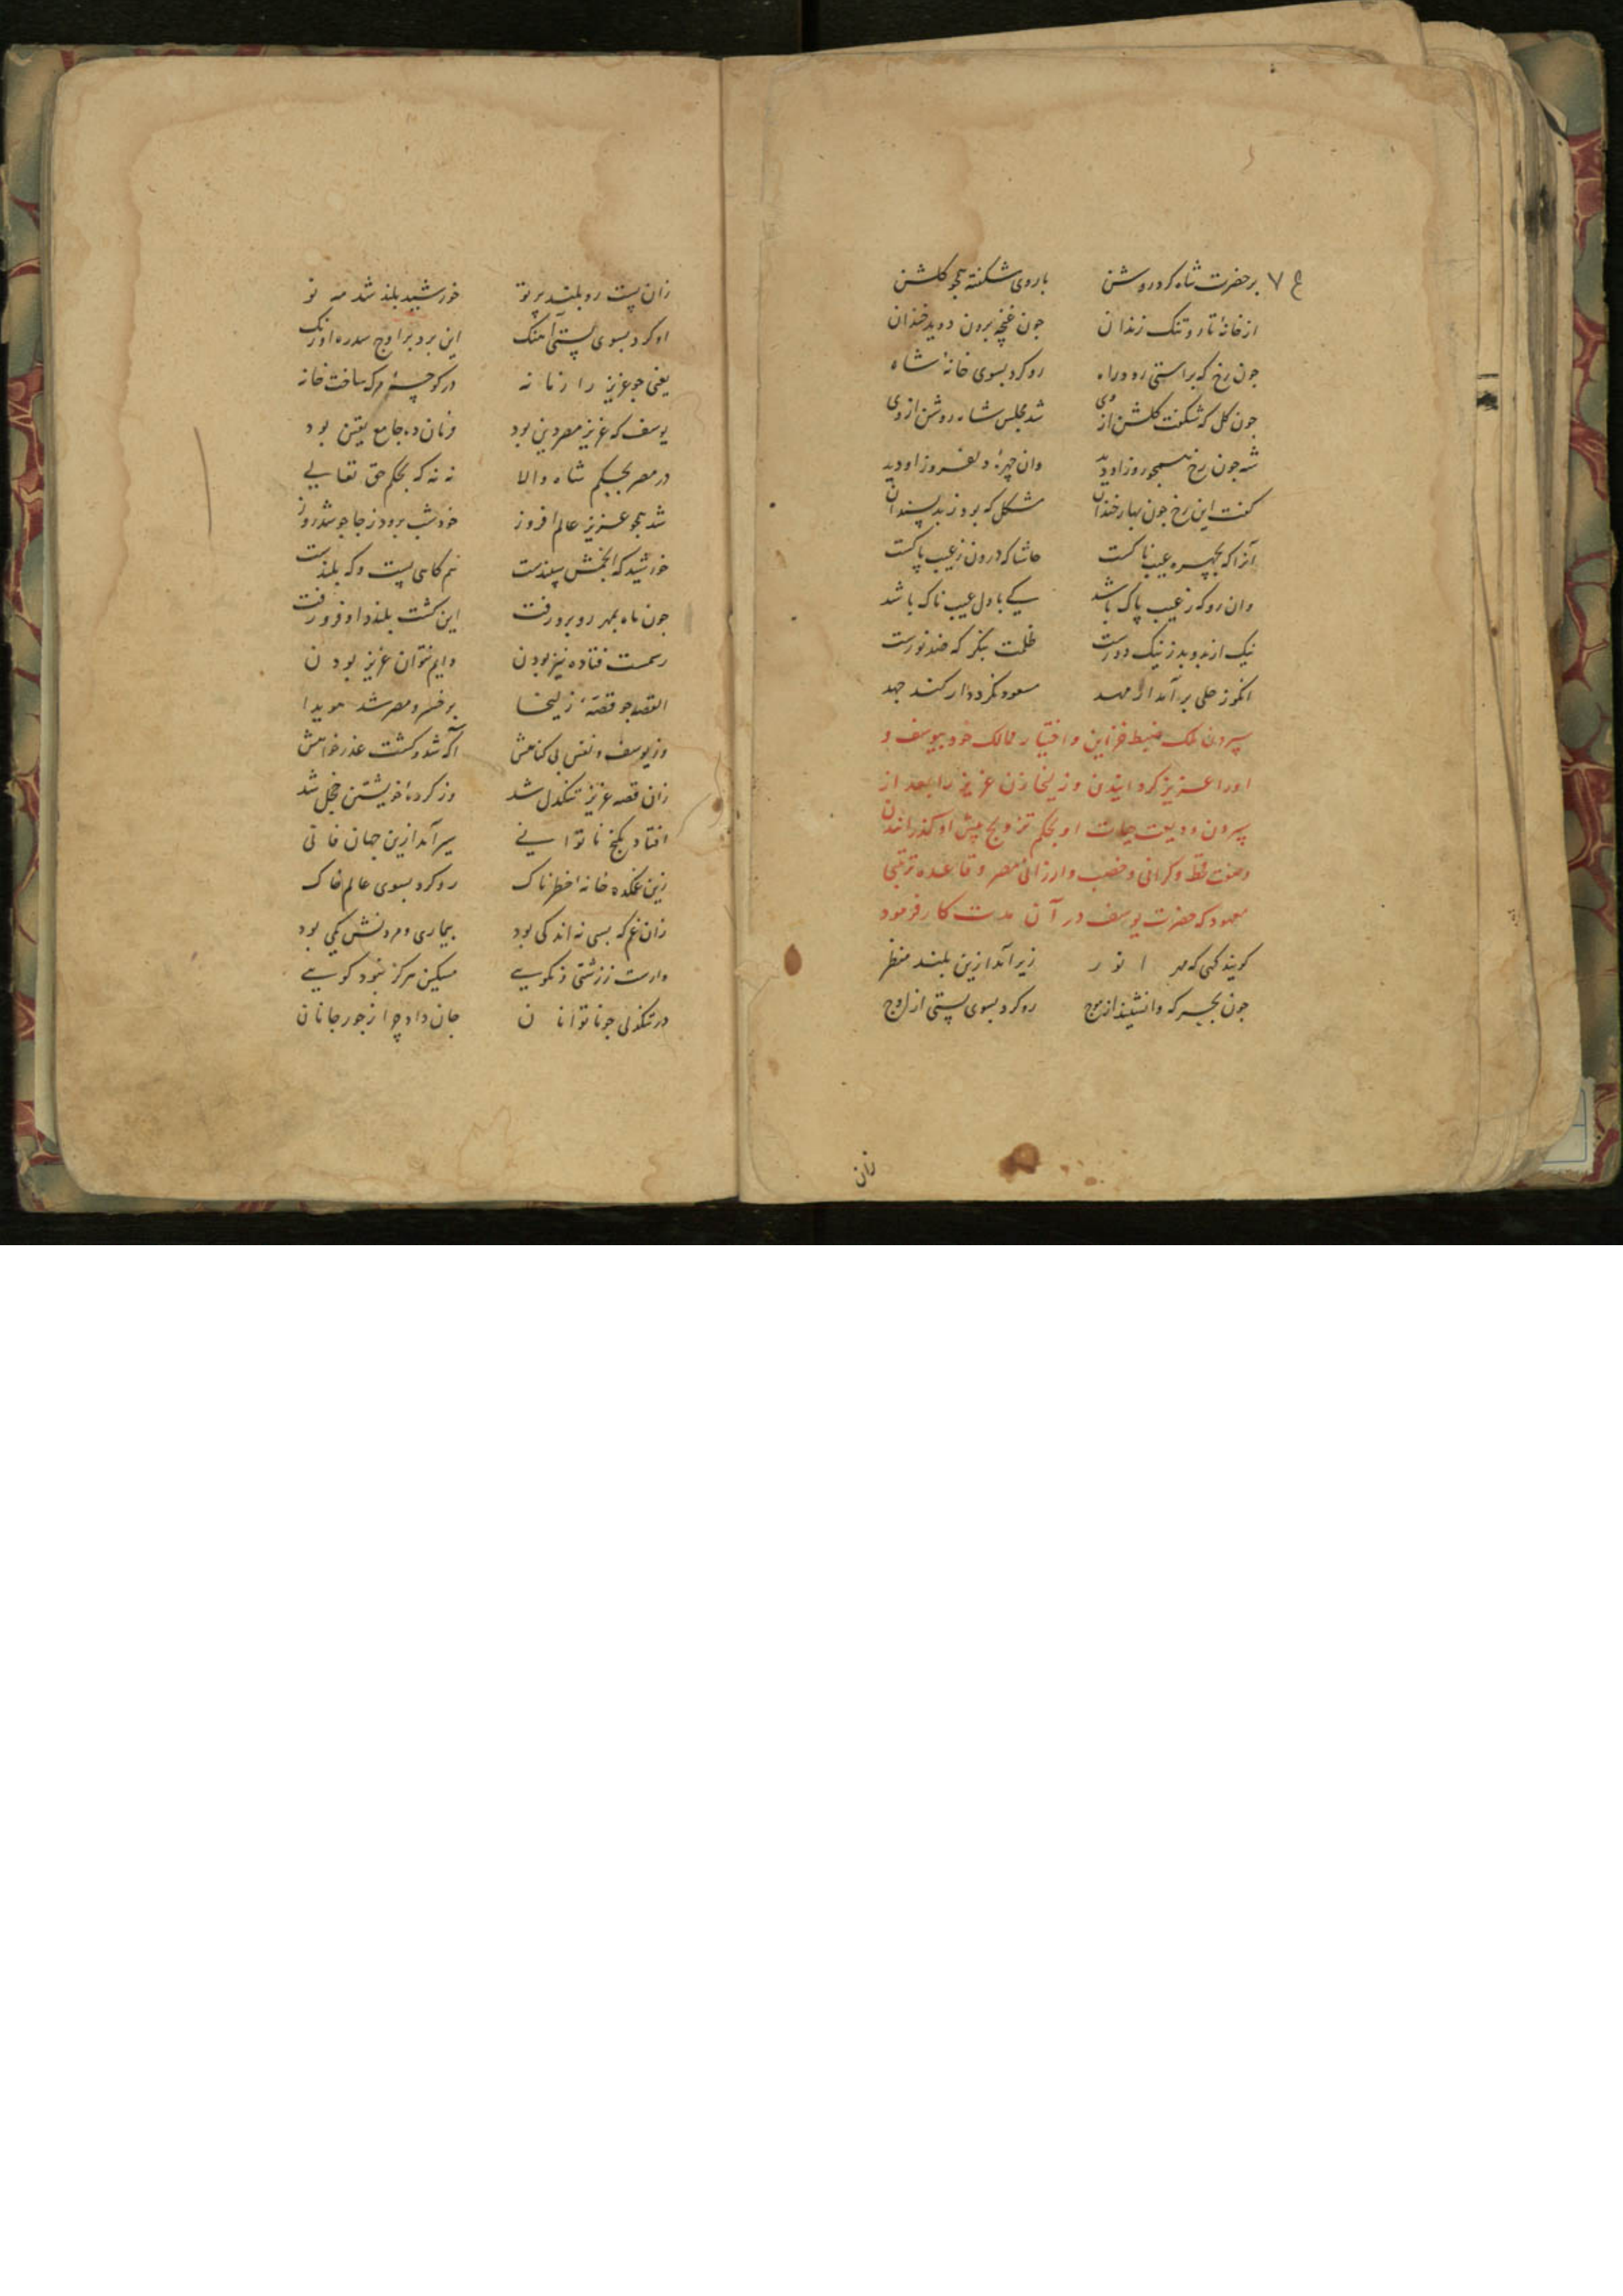 بر حضرت شاه کرد روشن با روی شکفته همچو کلشن
از خانهٔ تار و تنک زندان جون غنچه برون دوید خندان
جون رخ که براستی رود راه رو کرد بسوی خانهٔ شاه
جون کل که شکفت کلشن از وی شد مجلس شاه روشن از وی
شه جون رخ همجو روز او دید وان چهرهٔ دلفروز او دید
کفت این رخ جون بهار خندان مشکل که بود ز بد پسندان
آنرا که بچهره عیب ناکست حاشا که درون ز عیب پاکست
وان رو که ز عیب پاک باشد کی با دل عیب ناک باشد
نیک از بد و بد ز نیک دورست ظلمت بنکر که ضد نورست
انکور حلی بر آمد از مهد مسعود نکردد ار کند جهد
سپردن ملک ضبط خزاین و اختیار ممالک خود بیوسف و
او را عزیز کردانیدن و زلیخا زن عزیز را بعد از
سپردن ودیعت حیات او بحکم تزویج پیش او کذرانیدن
وصفت قحط و کرانی و خصب و ارزانی مصر و قاعده ترتیبی
معهود که حضرت یوسف در آن مدت کار فرمود
کویند کهی که مهر انور زیر آمد ازین بلند منظر
جون بحر که وانشیند از موج رو کرد بسوی پستی از اوج
زان
زان پست رو بلند پرتو خورشید بلند شد مه نو
او کرد بسوی پستی آهنک این برد بر اوج سدره اورنک
یعنی جو عزیز را زمانه در کوچهٔ مرک ساخت خانه
یوسف که عزیز مصر دین بود فرمان ده جامع یقین بود
در مصر بحکم شاه والا نه نه که بحکم حق تعالی
شد همجو عزیز عالم افروز خود شب برود ز جا جو شد روز
خورشید که انجمش سپندست هم کاهی پست و که بلندست
جون ماه بمهر روبرو رفت این کشت بلند و او فرو رفت
رسمست فتاده نیز بودن دایم نتوان عزیز بودن
القصه جو قصهٔ زلیخا بر خسرو مصر شد هویدا
وز یوسف و نفس بی کناهش آکه شد و کشت عذر خواهش
زان قصه عزیز تنکدل شد وز کردهٔ خویشتن خجل شد
افتاد بکنج ناتوانی سیر آمد ازین جهان فانی
زین غمکده خانهٔ خطرناک رو کرد بسوی عالم خاک
زان غم که بسی نه اندکی بود بیماری و مردنش یکی بود
وارست ز زشتی و نکویی مسکین هرکز نبود کویی
در تنکدلی جو ناتوانان جان داد چو از جور جانان